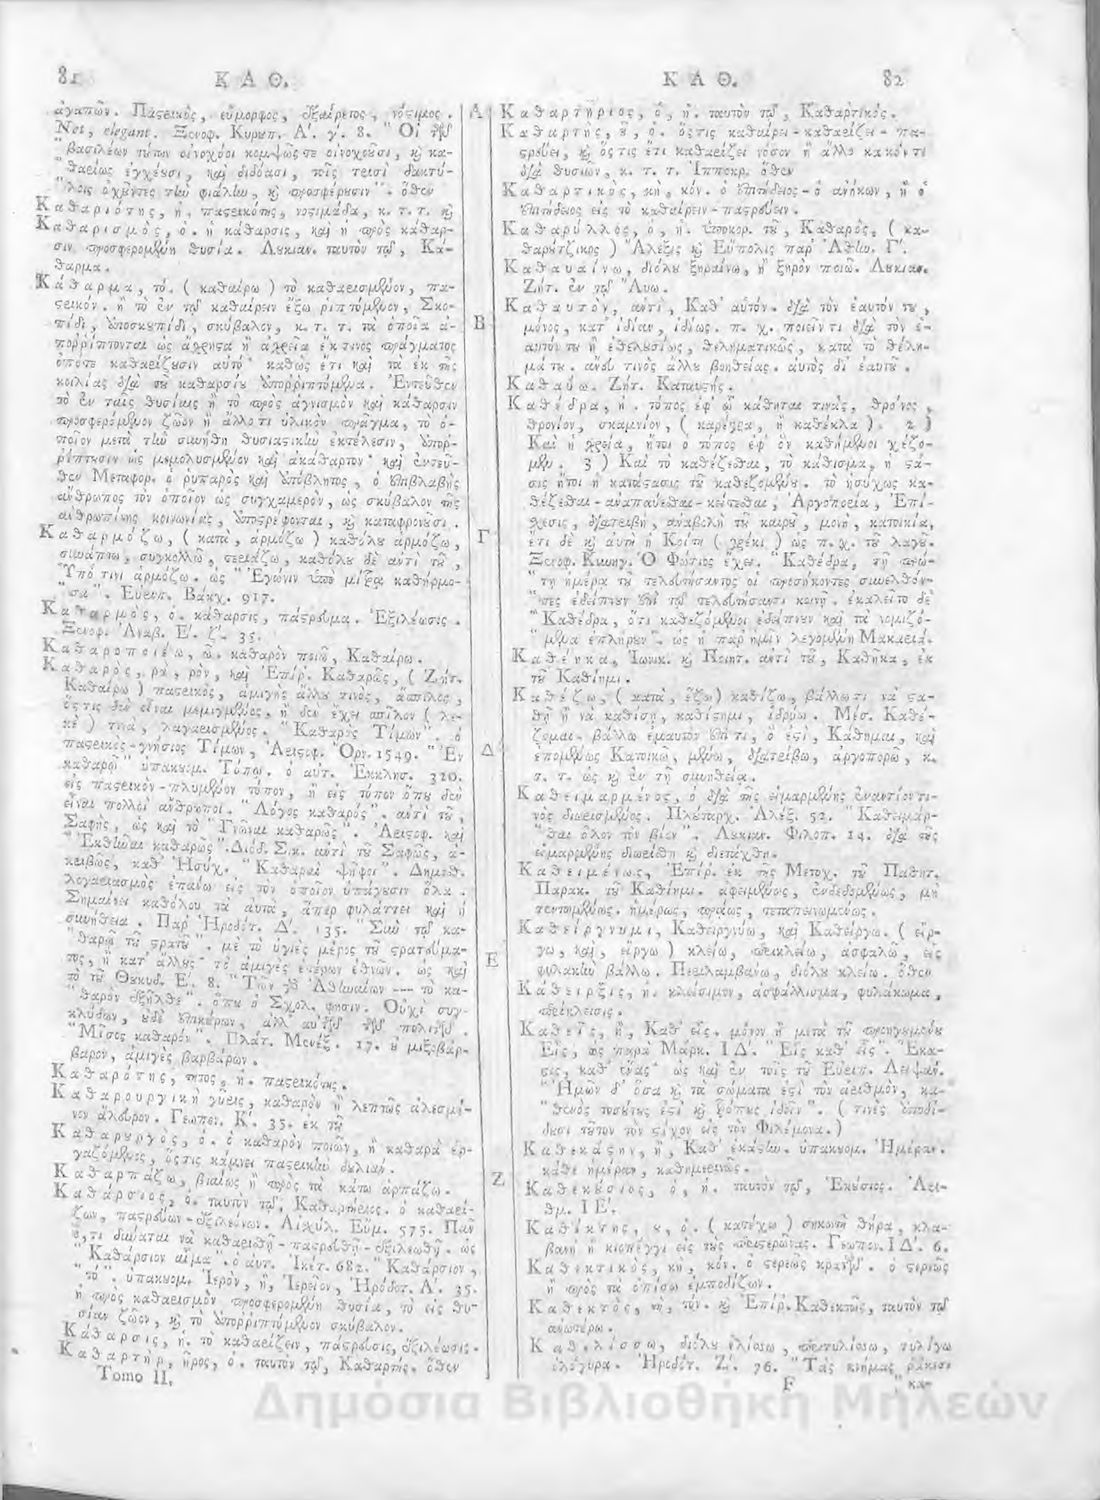 81 ΚΑΘ.
ἀγαπῶν. Παςρικὸς, εὔμορφος, ἐξαίρετος, νόςιμος.
Net, elegant. Ξενοφ. Κυρωπ. Α΄. γ΄. 8. "Οἱ τῶν
"βασιλέων τούτων οἰνοχόοι κομψῶς τε οἰνοχοοῦσι, καὶ κα-
"θαρίως ἐγχέουσι, καὶ διδόασι, τοῖς τρισὶ δακτύ-
"λοις ὀχοῦντες τὴν φιάλην, καὶ προσφέρουσιν". ὅθεν
Καθαριότης, ἡ. παςρικότης, νοςιμάδα, κ. τ. τ. καὶ
Καθαρισμὸς, ὁ. ἡ κάθαρσις, καὶ ἡ πρὸς κάθαρ-
σιν προσφερομένη θυσία. Λουκιαν. ταυτὸν τῷ, Κά-
θαρμα.
Κάθαρμα, τό. (καθαίρω) τὸ καθαρισμένον, πα-
ςρικόν. ἢ τὸ ἐν τῷ καθαίρειν ἔξω ριπτόμενον, Σκο-
πίδι, ἀποσκουπίδι, σκύβαλον, κ. τ. τ. τὰ ὁποῖα ἀ-
πορρίπτονται ὡς ἄχρηςα ἢ ἀχρεῖα ἔκ τινος πράγματος
ὁπότε καθαρίζουσιν αὐτό· καθὼς ἔτι καὶ τὰ ἐκ τῆς
κοιλίας διὰ τοῦ καθαρσίου ἀπορριπτόμενα. Ἐντεῦθεν
τὸ ἐν ταῖς θυσίαις ἢ τὸ πρὸς ἁγνισμὸν καὶ κάθαρσιν
προσφερόμενον ζῶον ἢ ἄλλο τι ὑλικὸν πρᾶγμα, τὸ ὁ-
ποῖον μετὰ τὴν συνήθη θυσιαςικὴν ἐκτέλεσιν, ἀπορ-
ρίπτεσιν ὡς μεμολυσμένον καὶ ἀκάθαρτον· καὶ ἐντεῦ-
θεν Μεταφορ. ὁ ρυπαρὸς καὶ ἀπόβλητος, ὁ ἐπιβλαβὴς
ἄνθρωπος τὸν ὁποῖον ὡς συγχαμερὸν, ὡς σκύβαλον τῆς
ἀνθρωπίνης κοινωνίας, ἀποςρέφονται, καὶ καταφρονοῦσι.
Καθαρμόζω, (κατὰ, ἁρμόζω) καθόλου ἁρμόζω,
συνάπτω, συγκολλῶ, τεριάζω, καθόλου δὲ ἀντὶ τοῦ,
Ὑπό τινι ἁρμόζω. ὡς "Ἔγωνιν ὑπὸ μίτρα καθήρμο-
"σα". Εὐριπ. Βάκχ. 917.
Καθαρμὸς, ὁ. κάθαρσις, πάςρευμα. Ἐξιλέωσις.
Ξενοφ. Ἀναβ. Ε΄. ζ΄. 35.
Καθαροποιέω, ῶ. καθαρὸν ποιῶ, Καθαίρω.
Καθαρὸς, ρὰ, ρὸν, καὶ Ἐπίρ. Καθαρῶς, (Ζήτ.
Καθαίρω) παςρικὸς, ἀμιγὴς ἄλλου τινὸς, ἄσπιλος,
ὅςτις δὲν εἶναι μεμιγμένος, ἢ δὲν ἔχει σπίλον (λε-
κὲ) τινὰ, λαγαρισμένος. "Καθαρὸς Τίμων". ὁ
παςρικὸς-γνήσιος Τίμων, Ἀριςοφ. Ὀρν. 1549. "Ἐν
καθαρῷ" ὑπακουομ. Τόπῳ. ὁ αὐτ. Ἐκκλησ. 320.
εἰς παςρικὸν-πλυμένον τόπον, ἢ εἰς τόπον ὅπου δὲν
εἶναι πολλοὶ ἄνθρωποι. "Λόγος καθαρός". ἀντὶ τοῦ,
Σαφὴς, ὡς καὶ τὸ "Γνῶναι καθαρῶς". Ἀριςοφ. καὶ
"Ἐκθεῖναι καθαρῶς". Διόδ. Σικ. ἀντὶ τοῦ Σαφῶς, ἀ-
κριβῶς, καθ' Ἡσύχ. "Καθαραὶ ψῆφοι". Δημοσθ.
λογαριασμὸς ἐπάνω εἰς τὸν ὁποῖον ὑπάγουσιν ὅλα.
Σημαίνει καθόλου τὰ αὐτὰ, ἅπερ φυλάττει καὶ ἡ
συνήθεια. Παρ' Ἡροδότ. Δ΄. 135. "Σὺν τῷ κα-
"θαρῷ τοῦ ςρατοῦ". μὲ τὸ ὑγιὲς μέρος τοῦ ςρατεύμα-
τος, ἢ κατ' ἄλλους τὸ ἀμιγὲς ἑτέρων ἐθνῶν. ὡς καὶ
τὸ τοῦ Θουκυδ. Ε΄. 8. "Τῶν γὰρ Ἀθηναίων — τὸ κα-
"θαρὸν ἐξῆλθε". ὅπου ὁ Σχολ. φησιν. Οὐχὶ συγ-
κλύδων, οὐδὲ ἐπικούρων, ἀλλ' αὐτῶν τῶν πολιτῶν.
"Μῖσος καθαρόν". Πλάτ. Μενέξ. 17. οὐ μιξοβάρ-
βαρον, ἀμιγὲς βαρβάρων.
Καθαρότης, τητος, ἡ. παςρικότης.
Καθαρουργικὴ γῦρις, καθαρὸν ἢ λεπτῶς ἀλεσμέ-
νον ἄλευρον. Γεωπον. Κ΄. 35. ἐκ τοῦ
Καθαρουργὸς, ὁ. ὁ καθαρὸν ποιῶν, ἢ καθαρὰ ἐρ-
γαζόμενος, ὅςτις κάμνει παςρικὴν δουλιάν.
Καθαρπάζω, βιαίως ἢ πρὸς τὰ κάτω ἁρπάζω.
Καθάρσιος, ὁ. ταυτὸν τῷ, Καθαρτήριος. ὁ καθαρί-
ζων, παςρεύων-ἐξιλεόνων. Αἰχύλ. Εὐμ. 575. Πᾶν
ὅ,τι δύναται νὰ καθαρισθῇ-παςρευθῇ-ἐξιλεωθῇ. ὡς
"Καθάρσιον αἷμα". ὁ αὐτ. Ἱκέτ. 682. "Καθάρσιον,
"τό". ὑπακουομ. Ἱερὸν, ἢ, Ἱερεῖον, Ἡρόδοτ. Α΄. 35.
ἡ πρὸς καθαρισμὸν προσφερομένη θυσία, τὸ εἰς θυ-
σίαν ζῶον, καὶ τὸ ἀπορριπτόμενον σκύβαλον.
Κάθαρσις, ἡ. τὸ καθαρίζειν, πάςρευσις, ἐξιλέωσις.
Καθαρτὴρ, ῆρος, ὁ. ταυτὸν τῷ, Καθαρτής. ὅθεν
Tomo II.
Α
Β
Γ
Δ
Ε
Ζ
ΚΑΘ. 82
Καθαρτήριος, ὁ, ἡ. ταυτὸν τῷ, Καθαρτικός.
Καθαρτὴς, οῦ, ὁ. ὅςτις καθαίρει-καθαρίζει-πα-
ςρεύει, καὶ ὅςτις ἔτι καθαρίζει νόσον ἢ ἄλλο κακόν τι
διὰ θυσιῶν, κ. τ. τ. Ἱπποκρ. ὅθεν
Καθαρτικὸς, κὴ, κόν. ὁ ἐπιτήδειος-ὁ ἀνήκων, ἢ ὁ
ἐπιτήδειος εἰς τὸ καθαίρειν-παςρεύειν.
Καθαρύλλος, ὁ, ἡ. ὑποκορ. τοῦ, Καθαρός, (κα-
θαρούτζικος) Ἄλεξις καὶ Εὔπολις παρ' Ἀθήν. Γ΄.
Καθαυαίνω, διόλου ξηραίνω, ἢ ξηρὸν ποιῶ. Λουκιαν.
Ζήτ. ἐν τῷ Αὔω.
Καθαυτὸν, ἀντὶ, Καθ' αὑτόν. διὰ τὸν ἑαυτόν του,
μόνος, κατ' ἰδίαν, ἰδίως. π. χ. ποιεῖν τι διὰ τὸν ἑ-
αυτόν του ἢ ἐθελουσίως, θεληματικῶς, κατὰ τὸ θέλη-
μά του. ἄνευ τινὸς ἄλλου βοηθείας. αὐτὸς δι' ἑαυτοῦ.
Καθαύω. Ζήτ. Καταυςής.
Καθέδρα, ἡ. τόπος ἐφ' ᾧ κάθηταί τινάς, θρόνος,
θρονίον, σκαμνίον, (καρέγλα, ἢ καθέκλα). 2)
Καὶ ἡ χρεία, ἤτοι ὁ τόπος ἐφ' ὃν καθήμενοι χέζο-
μεν. 3) Καὶ τὸ καθέζεσθαι, τὸ κάθισμα, ἡ ςά-
σις ἤτοι ἡ κατάςασις τοῦ καθεζομένου. τὸ ἡσύχως κα-
θέζεσθαι-ἀναπαύεσθαι-κεῖσθαι, Ἀργοπορία, Ἐπί-
χεσις, διατριβὴ, ἀναβολὴ τοῦ καιροῦ, μονὴ, κατοικία,
ἔτι δὲ καὶ αὐτὴ ἡ Κοίτη ὡς π. χ. τοῦ λαγοῦ.
Ξενοφ. Κυνηγ. Ὁ Φώτιος ἔχει. "Καθέδρα, τῇ πρώ-
"τῃ ἡμέρᾳ τοῦ τελευτήσαντος οἱ προσήκοντες συνελθόν-
"τες ἐδείπνουν ἐπὶ τῷ τελευτήσαντι κοινῇ. ἐκαλεῖτο δὲ
"Καθέδρα, ὅτι καθεζόμενοι ἐδείπνουν καὶ τὰ νομιζό-
"μενα ἐπλήρουν". ὡς ἡ παρ' ἡμῖν λεγομένη Μακαρία.
Καθέηκα, Ἰωνικ. καὶ Ποιητ. ἀντὶ τοῦ, Καθῆκα, ἐκ
τοῦ Καθίημι.
Καθέζω, (κατὰ, ἕζω) καθίζω, βάλλω τι νὰ ςα-
θῇ ἢ νὰ καθίσῃ, καθίςημι, ἱδρύω. Μέσ. Καθέ-
ζομαι. βάλλω ἐμαυτὸν ἐπί τι, ὅ ἐςι, Κάθημαι, καὶ
ἑπομένως Κατοικῶ, μένω, διατρίβω, ἀργοπορῶ, κ.
τ. τ. ὡς καὶ ἐν τῇ συνηθείᾳ.
Καθειμαρμένος, ὁ διὰ τῆς εἱμαρμένης ἐναντίον τι-
νὸς διωρισμένος. Πλούταρχ. Ἀλέξ. 52. "Καθειμάρ-
"θαι ὅλον τὸν βίον". Λουκιαν. Φιλοπ. 14. διὰ τῆς
εἱμαρμένης διωρίσθη καὶ διετάχθη.
Καθειμένως, Ἐπίρ. ἐκ τῆς Μετοχ. τοῦ Παθητ.
Παρακ. τοῦ Καθίημι. ἀφειμένως, ἐνδεδομένως, μὴ
τεντωμένως. ἡμέρως, πράως, τεταπεινωμένως.
Καθείργνυμι, Καθειργνύω, καὶ Καθείργω. (εἵρ-
γω, καὶ, εἴργω) κλείω, περικλείω, ἀσφαλῶ, εἰς
φυλακὴν βάλλω. Περιλαμβάνω, διόλου κλείω. ὅθεν
Κάθειρξις, ἡ. κλείσιμον, ἀσφάλλισμα, φυλάκωμα,
περίκλεισις.
Καθεῖς, ἢ, Καθ' εἷς. μόνον ἢ μετὰ τοῦ προηγουμένου
Εἷς, ὡς παρὰ Μάρκ. ΙΔ΄. "Εἷς καθ' εἷς". Ἕκα-
ςος, καθ' ἕνας· ὡς καὶ ἐν τοῖς τοῦ Εὐριπ. Λειψάν.
"Ἡμῶν δ' ὅσα καὶ τὰ σώματα ἐςὶ τὸν ἀριθμὸν, κα-
"θενὸς τοσούτους ἐςὶ καὶ τρόπους ἰδεῖν". (τινὲς ἀποδί-
δουσι τοῦτον τὸν ςίχον εἰς τὸν Φιλήμονα.)
Καθεκάςην, ἢ, Καθ' ἑκάςην. ὑπακουομ. Ἡμέραν.
κάθε ἡμέραν, καθημερινῶς.
Καθεκούσιος, ὁ, ἡ. ταυτὸν τῷ, Ἑκούσιος. Ἀρι-
θμ. ΙΕ΄.
Καθέκτης, ου, ὁ. (κατέχω) σηκωτὴ θύρα, κλα-
βανὴ ἢ κιοπέγγι εἰς τοὺς περιςερῶνας. Γεωπον. ΙΔ΄. 6.
Καθεκτικὸς, κὴ, κόν. ὁ ςερεῶς κρατῶν. ὁ ςερεῶς
ἢ πρὸς τὰ ὀπίσω ἐμποδίζων.
Καθεκτὸς, τὴ, τόν. καὶ Ἐπίρ. Καθεκτῶς, ταυτὸν τῷ
ἀνωτέρω.
Καθελίσσω, διόλου ἑλίσσω, περιτυλίσσω, τυλίγω
ὁλόγυρα. Ἡρόδοτ. Ζ΄. 76. "Τὰς κνήμας ῥάκεσι
F "κα-
Δημόσια Βιβλιοθήκη Μηλεών